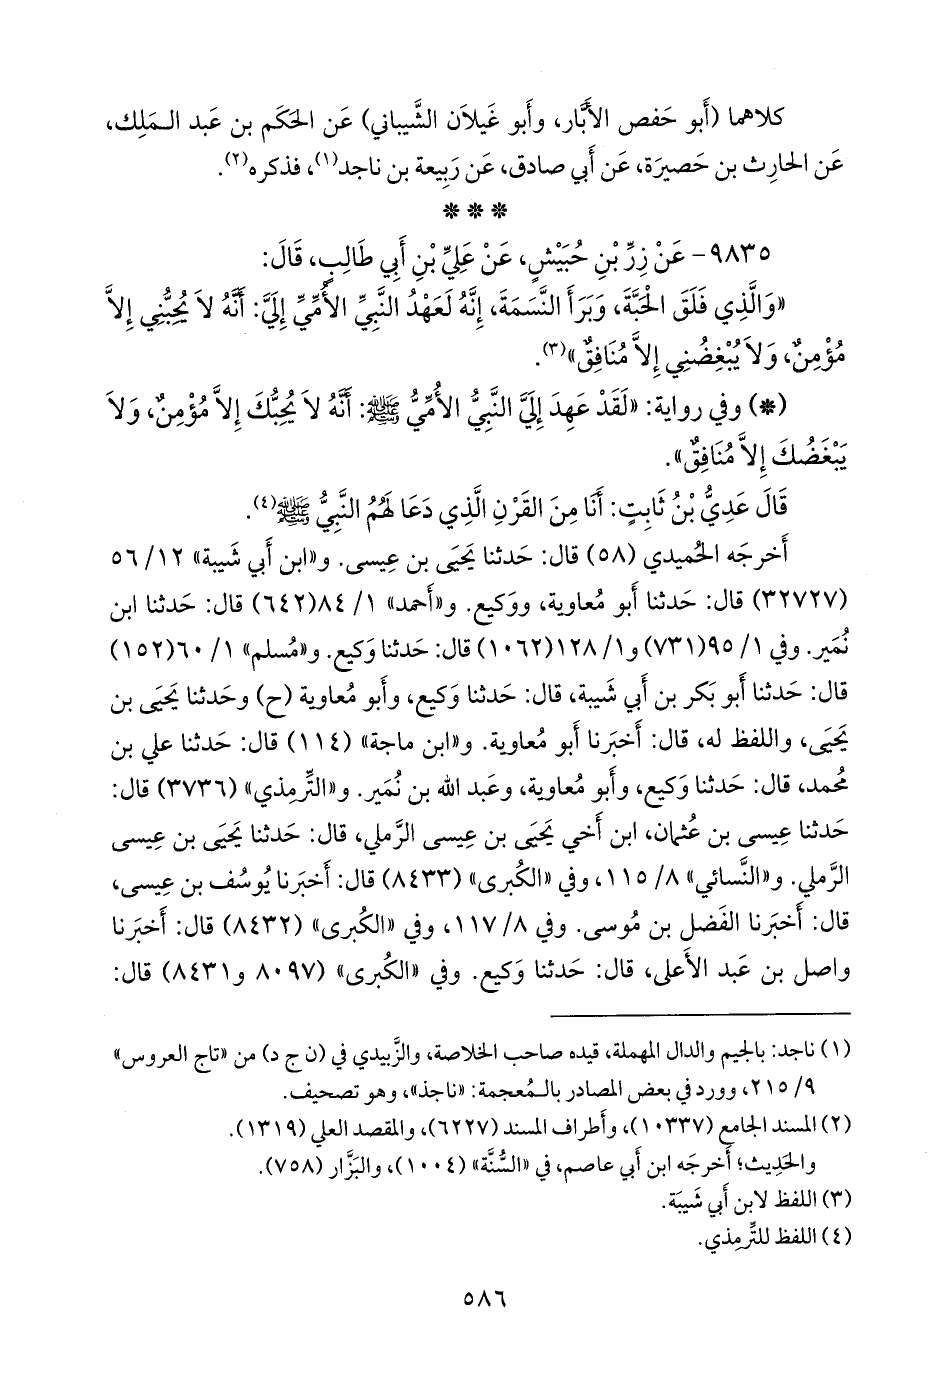 كلاهما (أَبو حَفص الأَبَّار، وأَبو غَيلاَن الشَّيباني) عَن الحَكَم بن عَبد الـمَلِك،
عَن الحارِث بن حَصيرَة، عَن أَبي صادق، عَن رَبِيعة بن ناجد(١)، فذكره(٢).
* * *
٩٨٣٥- عَنْ زِرِّ بْنِ حُبَيْشٍ، عَنْ عَلِيِّ بْنِ أَبِي طَالِبٍ، قَالَ:
«وَالَّذِي فَلَقَ الْحَبَّةَ، وَبَرَأَ النَّسَمَةَ، إِنَّهُ لَعَهْدُ النَّبِيِّ الأُمِّيِّ إِلَيَّ: أَنَّهُ لاَ يُحِبُّنِي إِلاَّ
مُؤْمِنٌ، وَلاَ يُبْغِضُنِي إِلاَّ مُنَافِقٌ»(٣).
(*) وفي رواية: «لَقَدْ عَهِدَ إِلَيَّ النَّبِيُّ الأُمِّيُّ ﷺ: أَنَّهُ لاَ يُحِبُّكَ إِلاَّ مُؤْمِنٌ، وَلاَ
يَبْغَضُكَ إِلاَّ مُنَافِقٌ».
قَالَ عَدِيُّ بْنُ ثَابِتٍ: أَنَا مِنَ الْقَرْنِ الَّذِي دَعَا لَهُمُ النَّبِيُّ ﷺ(٤).
أَخرجَه الحُميدي (٥٨) قال: حَدثنا يَحيَى بن عِيسى. و«ابن أَبي شَيبة» ١٢/ ٥٦
(٣٢٧٢٧) قال: حَدثنا أَبو مُعاوية، ووَكيع. و«أَحمد» ١/ ٨٤(٦٤٢) قال: حَدثنا ابن
نُمَير. وفي ١/ ٩٥(٧٣١) و١/ ١٢٨(١٠٦٢) قال: حَدثنا وَكيع. و«مُسلم» ١/ ٦٠(١٥٢)
قال: حَدثنا أَبو بَكر بن أَبي شَيبة، قال: حَدثنا وَكيع، وأَبو مُعاوية (ح) وحَدثنا يَحيَى بن
يَحيَى، واللفظ له، قال: أَخبَرنا أَبو مُعاوية. و«ابن ماجة» (١١٤) قال: حَدثنا علي بن
مُحمد، قال: حَدثنا وَكيع، وأَبو مُعاوية، وعَبد الله بن نُمَير. و«التِّرمِذي» (٣٧٣٦) قال:
حَدثنا عِيسى بن عُثمان، ابن أَخي يَحيَى بن عِيسى الرَّملي، قال: حَدثنا يَحيَى بن عِيسى
الرَّملي. و«النَّسائي» ٨/ ١١٥، وفي «الكُبرى» (٨٤٣٣) قال: أَخبَرنا يُوسُف بن عِيسى،
قال: أَخبَرنا الفَضل بن مُوسى. وفي ٨/ ١١٧، وفي «الكُبرى» (٨٤٣٢) قال: أَخبَرنا
واصل بن عَبد الأَعلى، قال: حَدثنا وَكيع. وفي «الكُبرى» (٨٠٩٧ و٨٤٣١) قال:
(١) ناجد: بالجيم والدال المهملة، قيده صاحب الخلاصة، والزَّبيدي في (ن ج د) من «تاج العروس»
٩/ ٢١٥، وورد في بعض المصادر بالـمُعجمة: «ناجذ»، وهو تصحيف.
(٢) المسند الجامع (١٠٣٣٧)، وأطراف المسند (٦٢٢٧)، والمقصد العلي (١٣١٩).
والحَدِيث؛ أَخرجَه ابن أَبي عاصم، في «السُّنَّة» (١٠٠٤)، والبَزَّار (٧٥٨).
(٣) اللفظ لابن أَبي شَيبَة.
(٤) اللفظ للتِّرمِذي.
٥٨٦